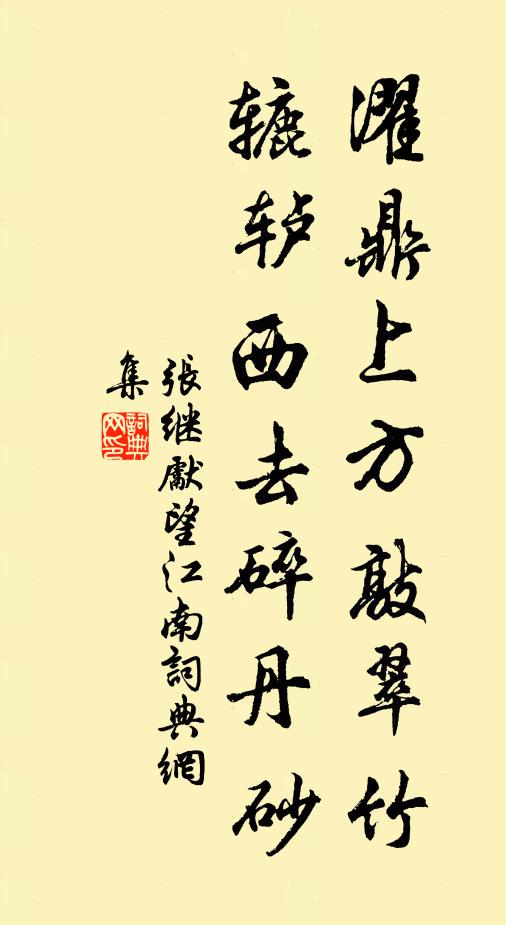 濯鼎上方敲翠竹
辘轳西去碎丹砂
張继獻望江南詞典網
集
詞典网印